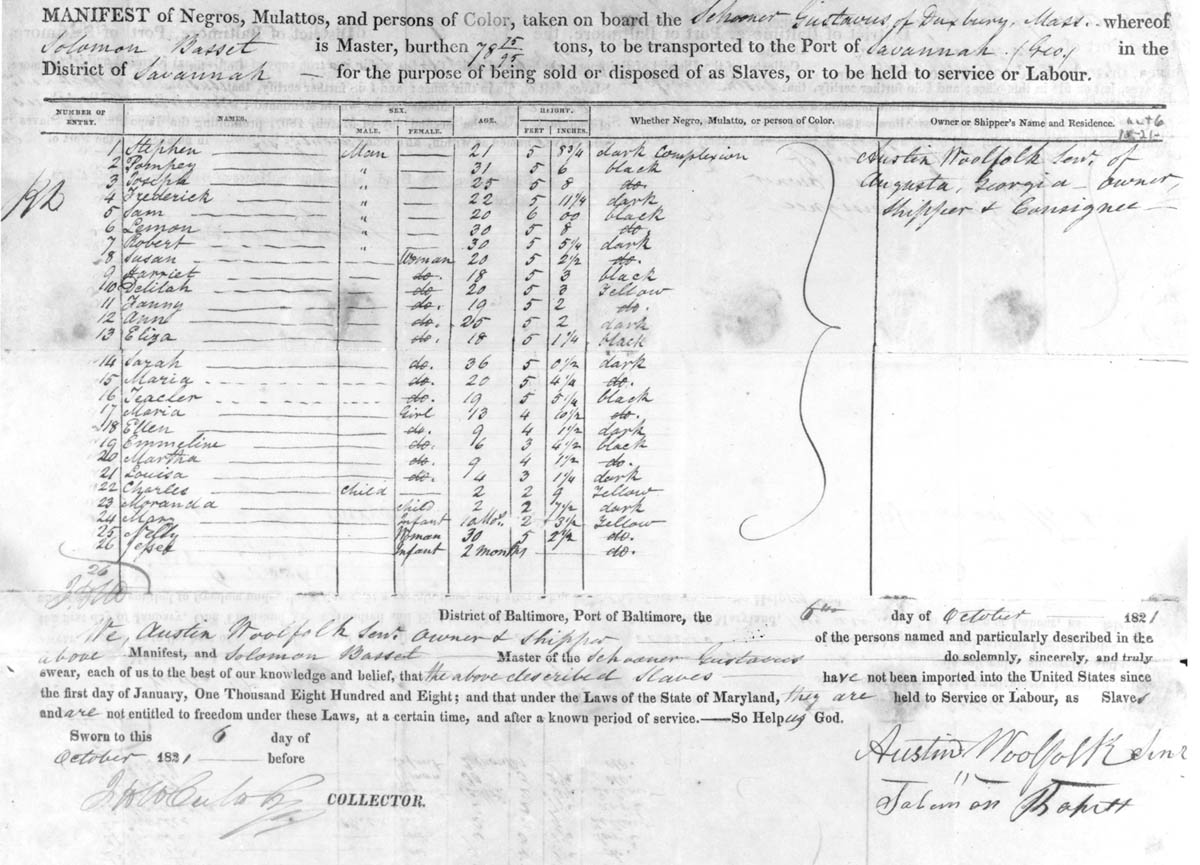 MANIFEST of Negros, Mulattos, and persons of Color, taken on board the Schooner Gustavus of Duxbury, Mass. whereof
Solomon Basset is Master, burthen 78 75/95 tons, to be transported to the Port of Savannah (Geo) in the
District of Savannah — for the purpose of being sold or disposed of as Slaves, or to be held to service or Labour.
NUMBER OF ENTRY. NAMES. SEX. MALE. FEMALE. AGE. HEIGHT. FEET INCHES. Whether Negro, Mulatto, or person of Color. Owner or Shipper's Name and Residence.
1 Stephen Man 21 5 8 3/4 dark Complexion Austin Woolfolk Senr. of
2 Pompey " 31 5 6 black Augusta, Georgia — owner,
3 Joseph " 25 5 8 do. Shipper & Consignee —
4 Frederick " 22 5 11 1/4 dark
5 Sam " 20 6 00 black
6 Lemon " 30 5 8 do
7 Robert " 30 5 5 1/4 dark
8 Susan Woman 20 5 2 1/2 do.
9 Harriet do. 18 5 3 black
10 Delilah do 20 5 3 Yellow
11 Fanny do. 19 5 2 do.
12 Ann do. 25 5 2 dark
13 Eliza do. 18 5 1 1/4 black
14 Sarah do. 36 5 0 1/2 dark
15 Maria do. 20 5 4 1/4 do.
16 do. 19 5 5 1/4 black
17 Maria Girl 13 4 10 1/2 do.
18 Ellen do. 9 4 1 1/2 dark
19 Emmeline do. 6 3 4 1/2 black
20 Martha do. 9 4 1 1/2 do.
21 Louisa do. 4 3 1 1/4 dark
22 Charles Child 2 2 9 Yellow
23 Moranda Child 2 2 7 1/2 dark
24 Mary Infant 2 3 1/2 Yellow
25 Nelly Woman 30 5 2 1/2 do.
26 Infant 2 months do.
26
District of Baltimore, Port of Baltimore, the 6th day of October 1821
We, Austin Woolfolk Senr. Owner & Shipper of the persons named and particularly described in the
above Manifest, and Solomon Basset Master of the Schooner Gustavus do solemnly, sincerely, and truly
swear, each of us to the best of our knowledge and belief, that the above described Slaves have not been imported into the United States since
the first day of January, One Thousand Eight Hundred and Eight; and that under the Laws of the State of Maryland, they are held to Service or Labour, as Slaves
and are not entitled to freedom under these Laws, at a certain time, and after a known period of service.——So Help us God.
Sworn to this 6 day of
October 1821 before
COLLECTOR.
Austin Woolfolk Senr